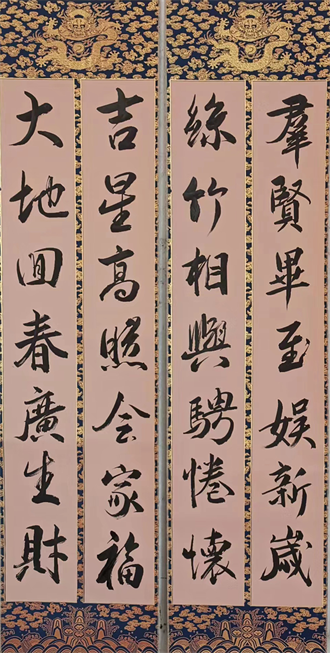 羣賢畢至娱新歲
絲竹相與騁惓懷
吉星高照会家福
大地回春廣生財